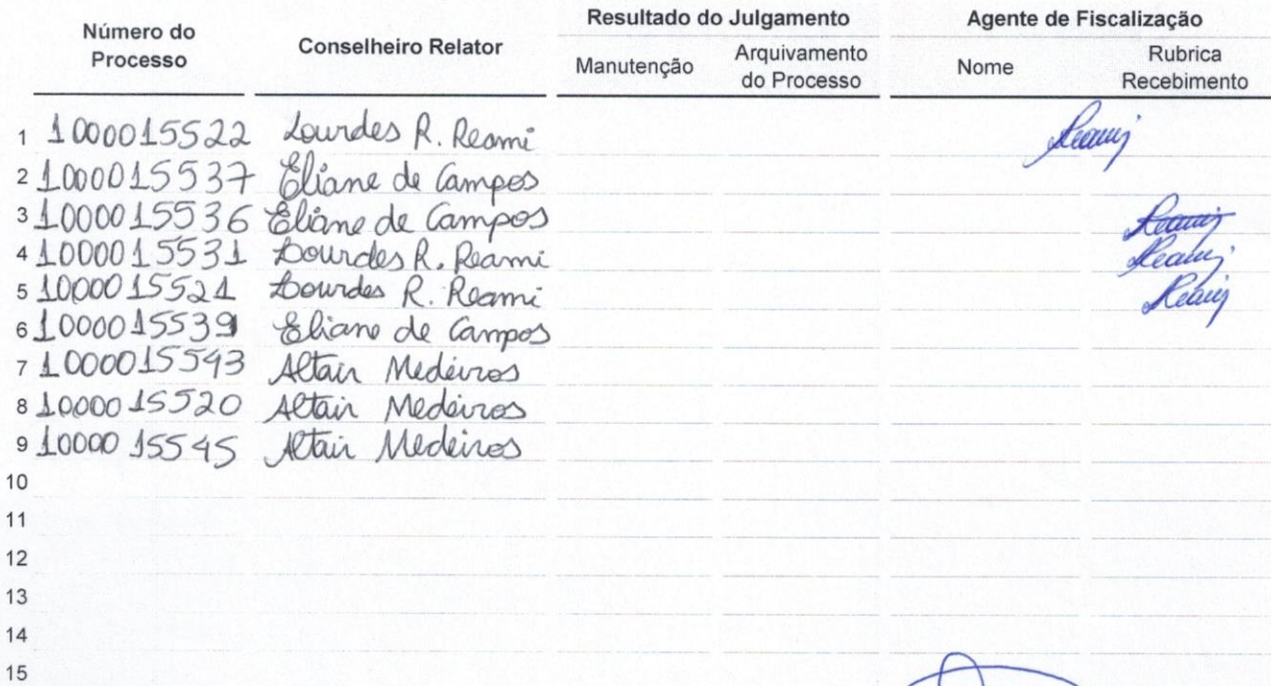 Número do Processo Conselheiro Relator Resultado do Julgamento Agente de Fiscalização
Manutenção Arquivamento do Processo Nome Rubrica Recebimento
1 1000015522 Lourdes R. Reami Reami
2 1000015537 Eliane de Campos
3 1000015536 Eliane de Campos Reami
4 1000015531 Lourdes R. Reami Reami
5 1000015521 Lourdes R. Reami Reami
6 1000015539 Eliane de Campos
7 1000015543 Altair Medeiros
8 1000015520 Altair Medeiros
9 1000015545 Altair Medeiros
10
11
12
13
14
15